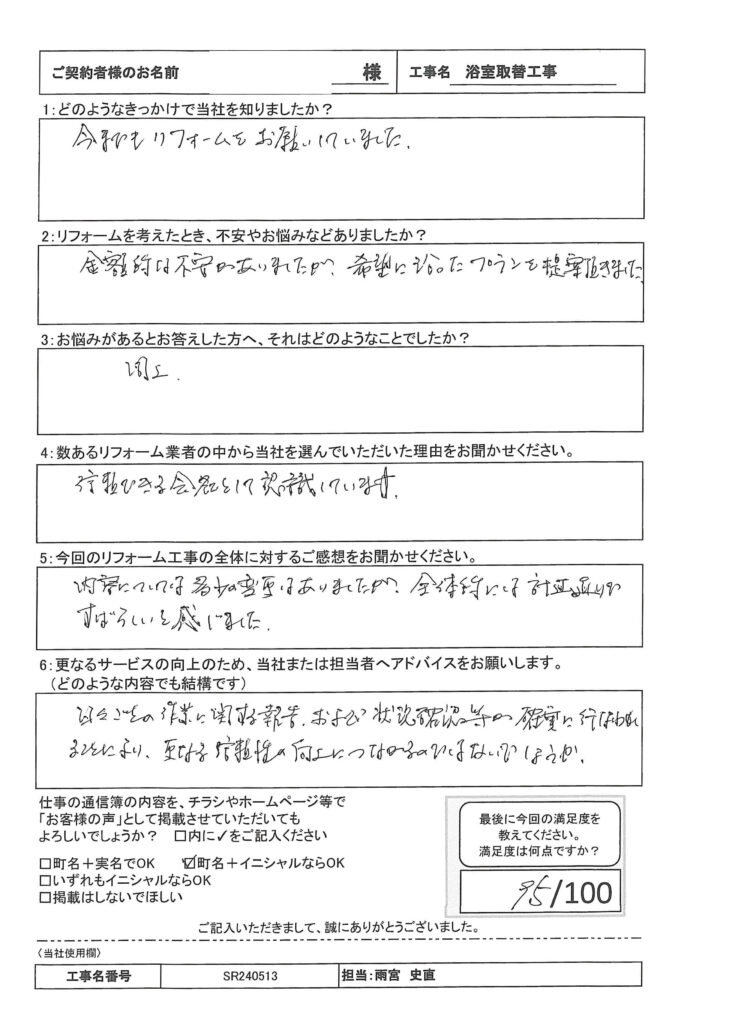 ご契約者様のお名前 様 工事名 浴室取替工事
1:どのようなきっかけで当社を知りましたか？
今までもリフォームをお願いしていました.
2:リフォームを考えたとき、不安やお悩みなどありましたか？
金額的な不安がありましたが、希望に沿ったプランを提案頂きました
3:お悩みがあるとお答えした方へ、それはどのようなことでしたか？
同上.
4:数あるリフォーム業者の中から当社を選んでいただいた理由をお聞かせください。
信頼できる会社として認識しています.
5:今回のリフォーム工事の全体に対するご感想をお聞かせください。
内容については多少の変更はありましたが、全体的には計画通りで
すばらしいと感じました.
6:更なるサービスの向上のため、当社または担当者へアドバイスをお願いします。
（どのような内容でも結構です）
日々ごとの作業に関する報告、および状況確認等が確実に行なわれ
ることにより、更なる信頼性の向上につながるのではないでしょうか.
仕事の通信簿の内容を、チラシやホームページ等で
「お客様の声」として掲載させていただいても
よろしいでしょうか？ □内に✓をご記入ください
□町名＋実名でOK ☑町名＋イニシャルならOK
□いずれもイニシャルならOK
□掲載はしないでほしい
最後に今回の満足度を
教えてください。
満足度は何点ですか？
95/100
ご記入いただきまして、誠にありがとうございました。
〈当社使用欄〉
工事名番号 SR240513 担当:雨宮 史直